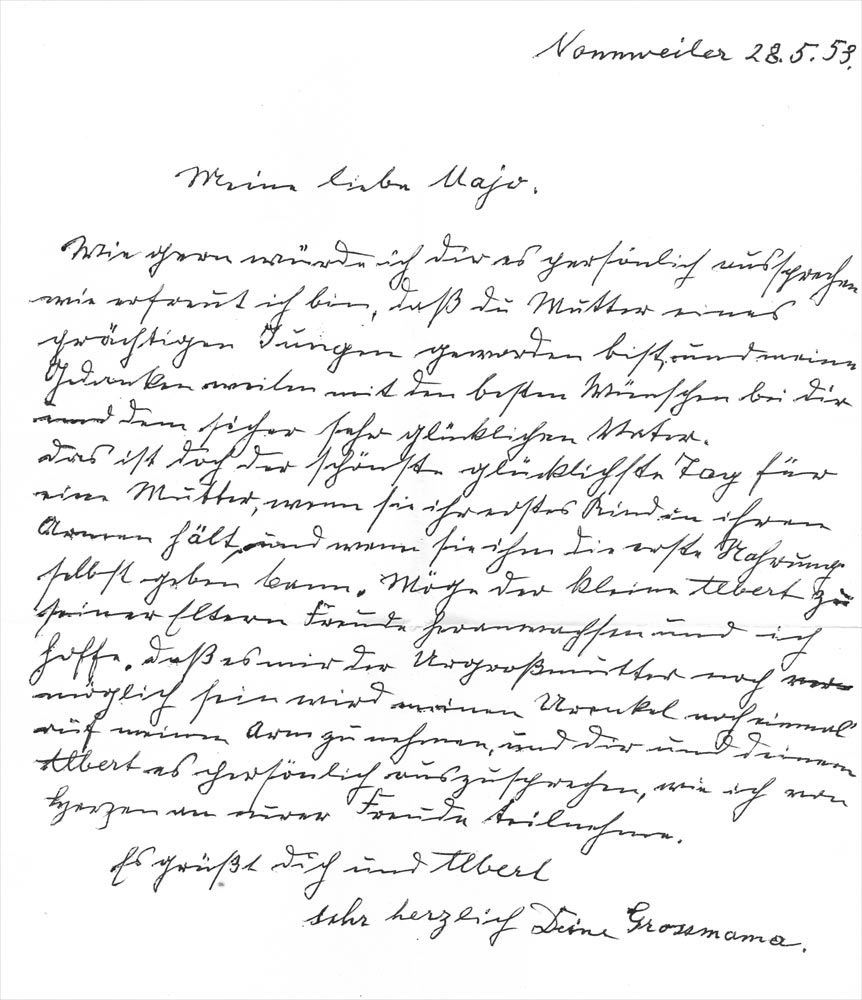 Nonnweiler 28.5.53.
Meine liebe Majo.
Wie gern würde ich dir es persönlich aussprechen
wie erfreut ich bin, daß du Mutter eines
prächtigen Jungen geworden bist, und meine
Gedanken weilen mit den besten Wünschen bei dir
und dem sicher sehr glücklichen Vater.
Das ist doch der schönste glücklichste Tag für
eine Mutter, wenn sie ihr erstes Kind in ihren
Armen hält, und wenn sie ihm die erste Nahrung
selbst geben kann. Möge der kleine Albert zu
seiner Eltern Freude heranwachsen und ich
hoffe, daß es mir der Urgroßmutter noch
möglich sein wird meinen Urenkel noch einmal
auf meinen Arm zu nehmen, und dir und deinem
Albert es persönlich auszusprechen, wie ich von
Herzen an eurer Freude teilnehme.
Es grüßt dich und Albert
sehr herzlich Deine Grossmama.